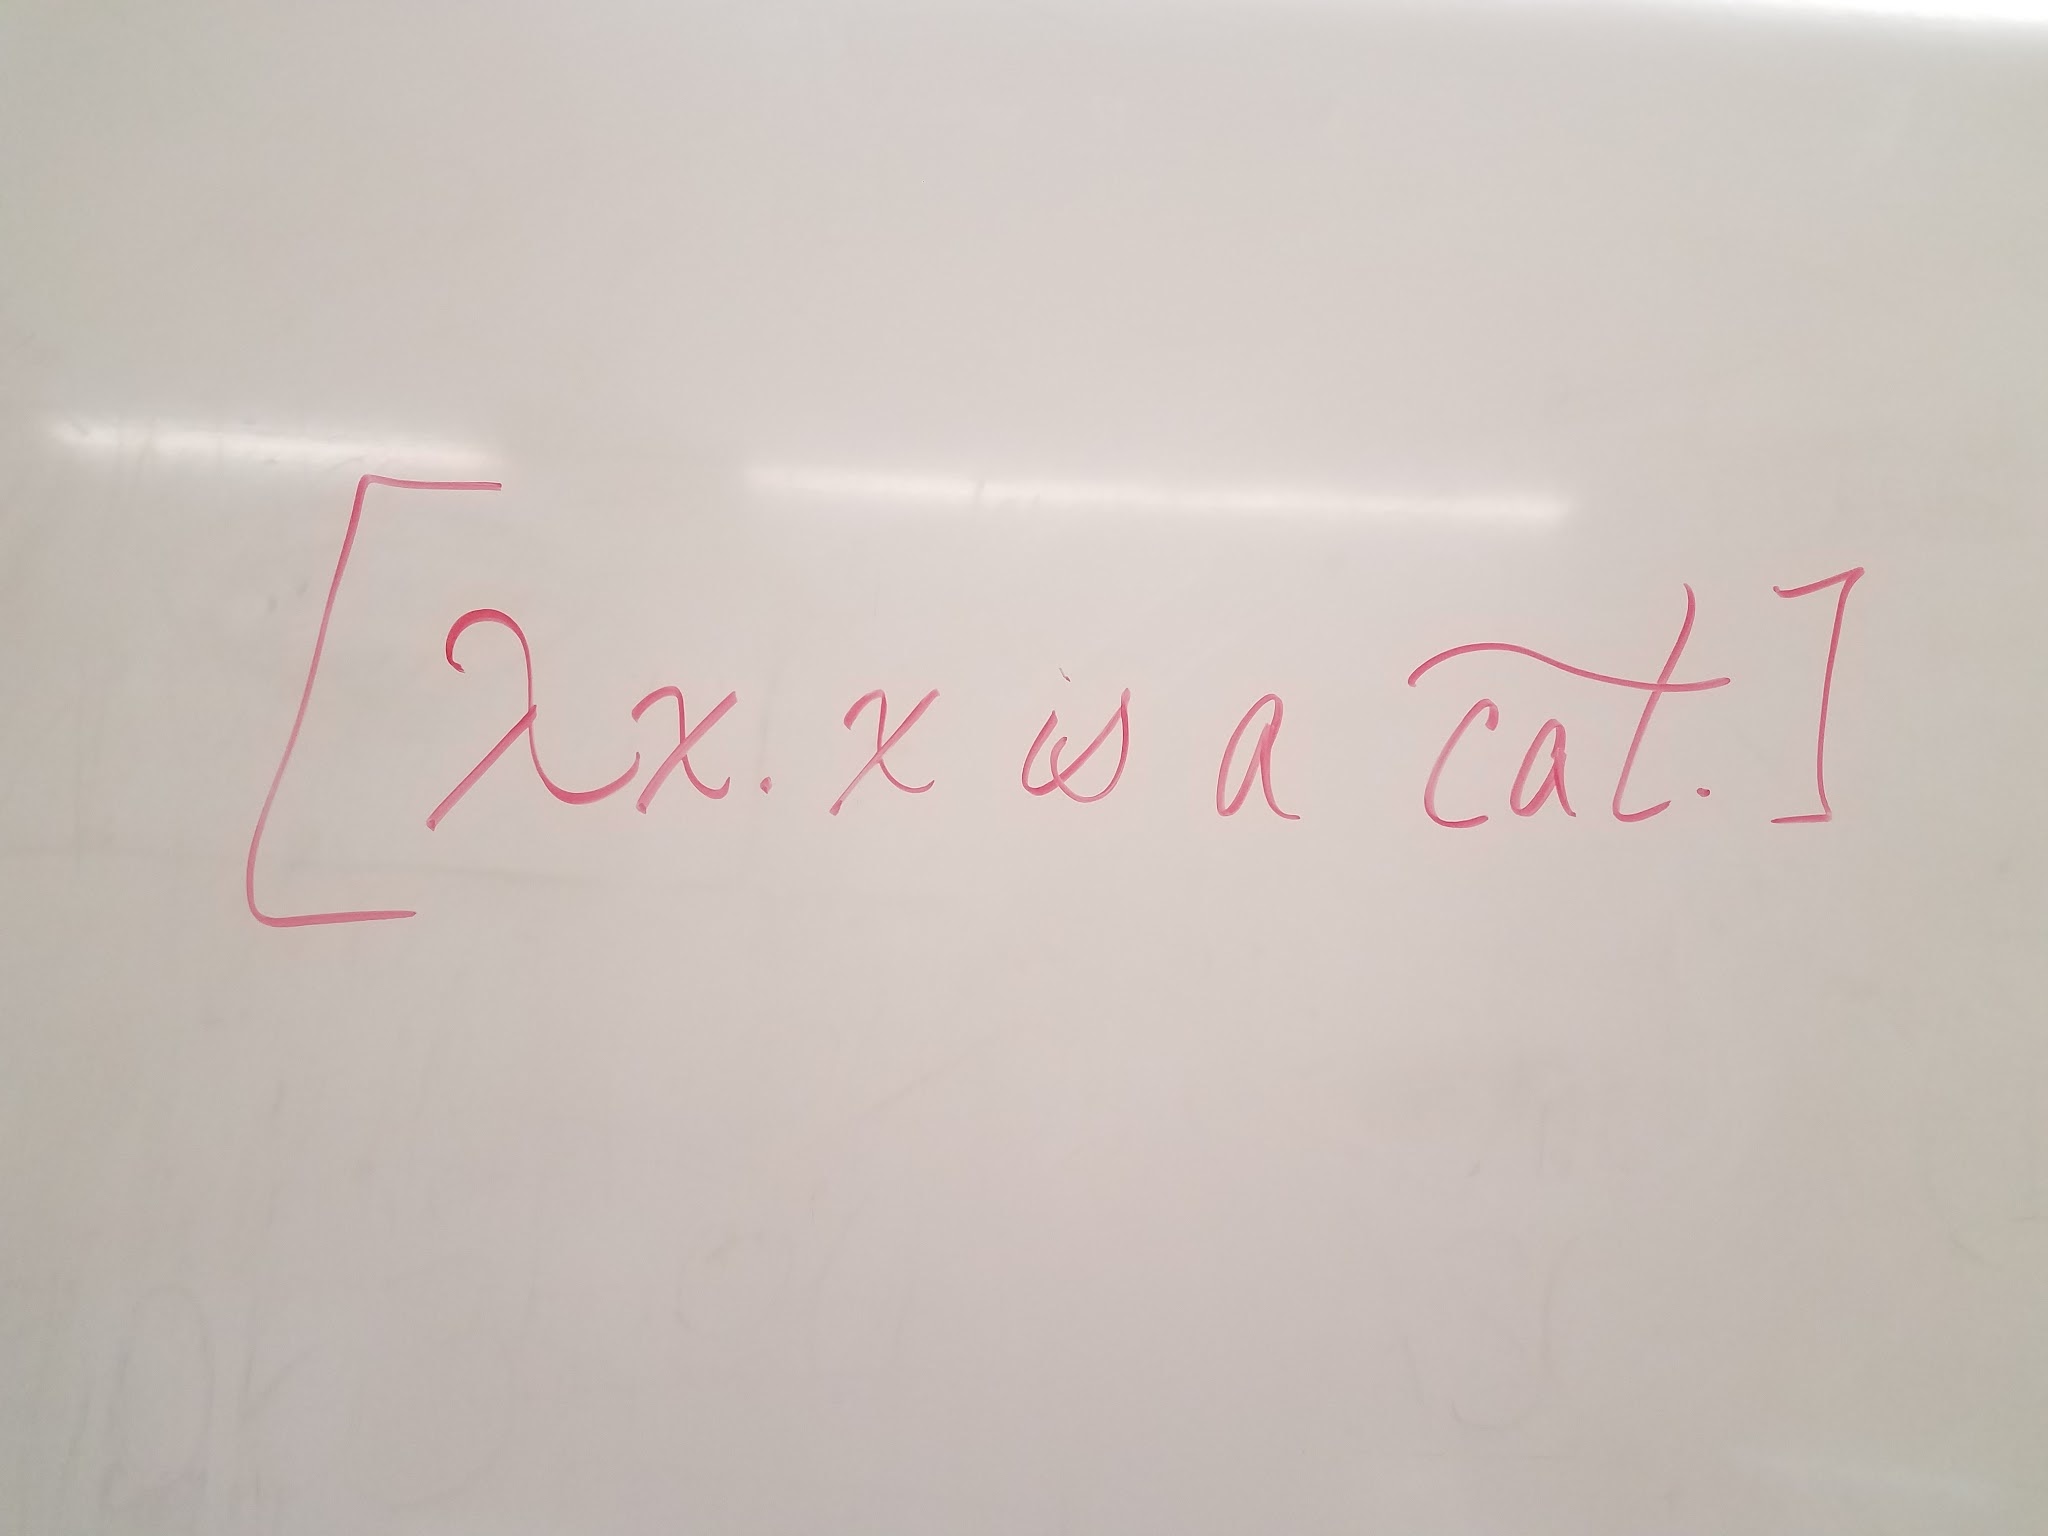 [λx. x is a cat.]